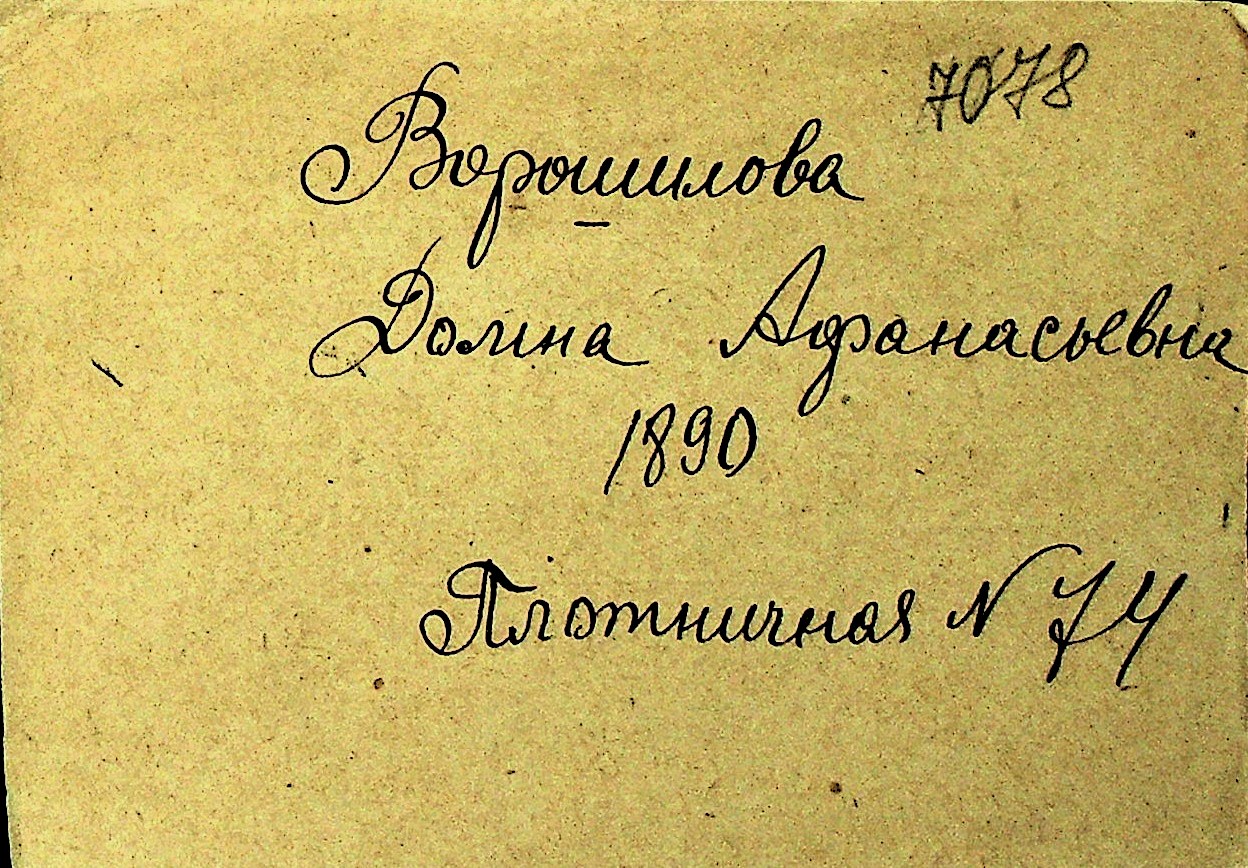 7078
Ворошилова
Домна Афанасьевна
1890
Плотничная N 74